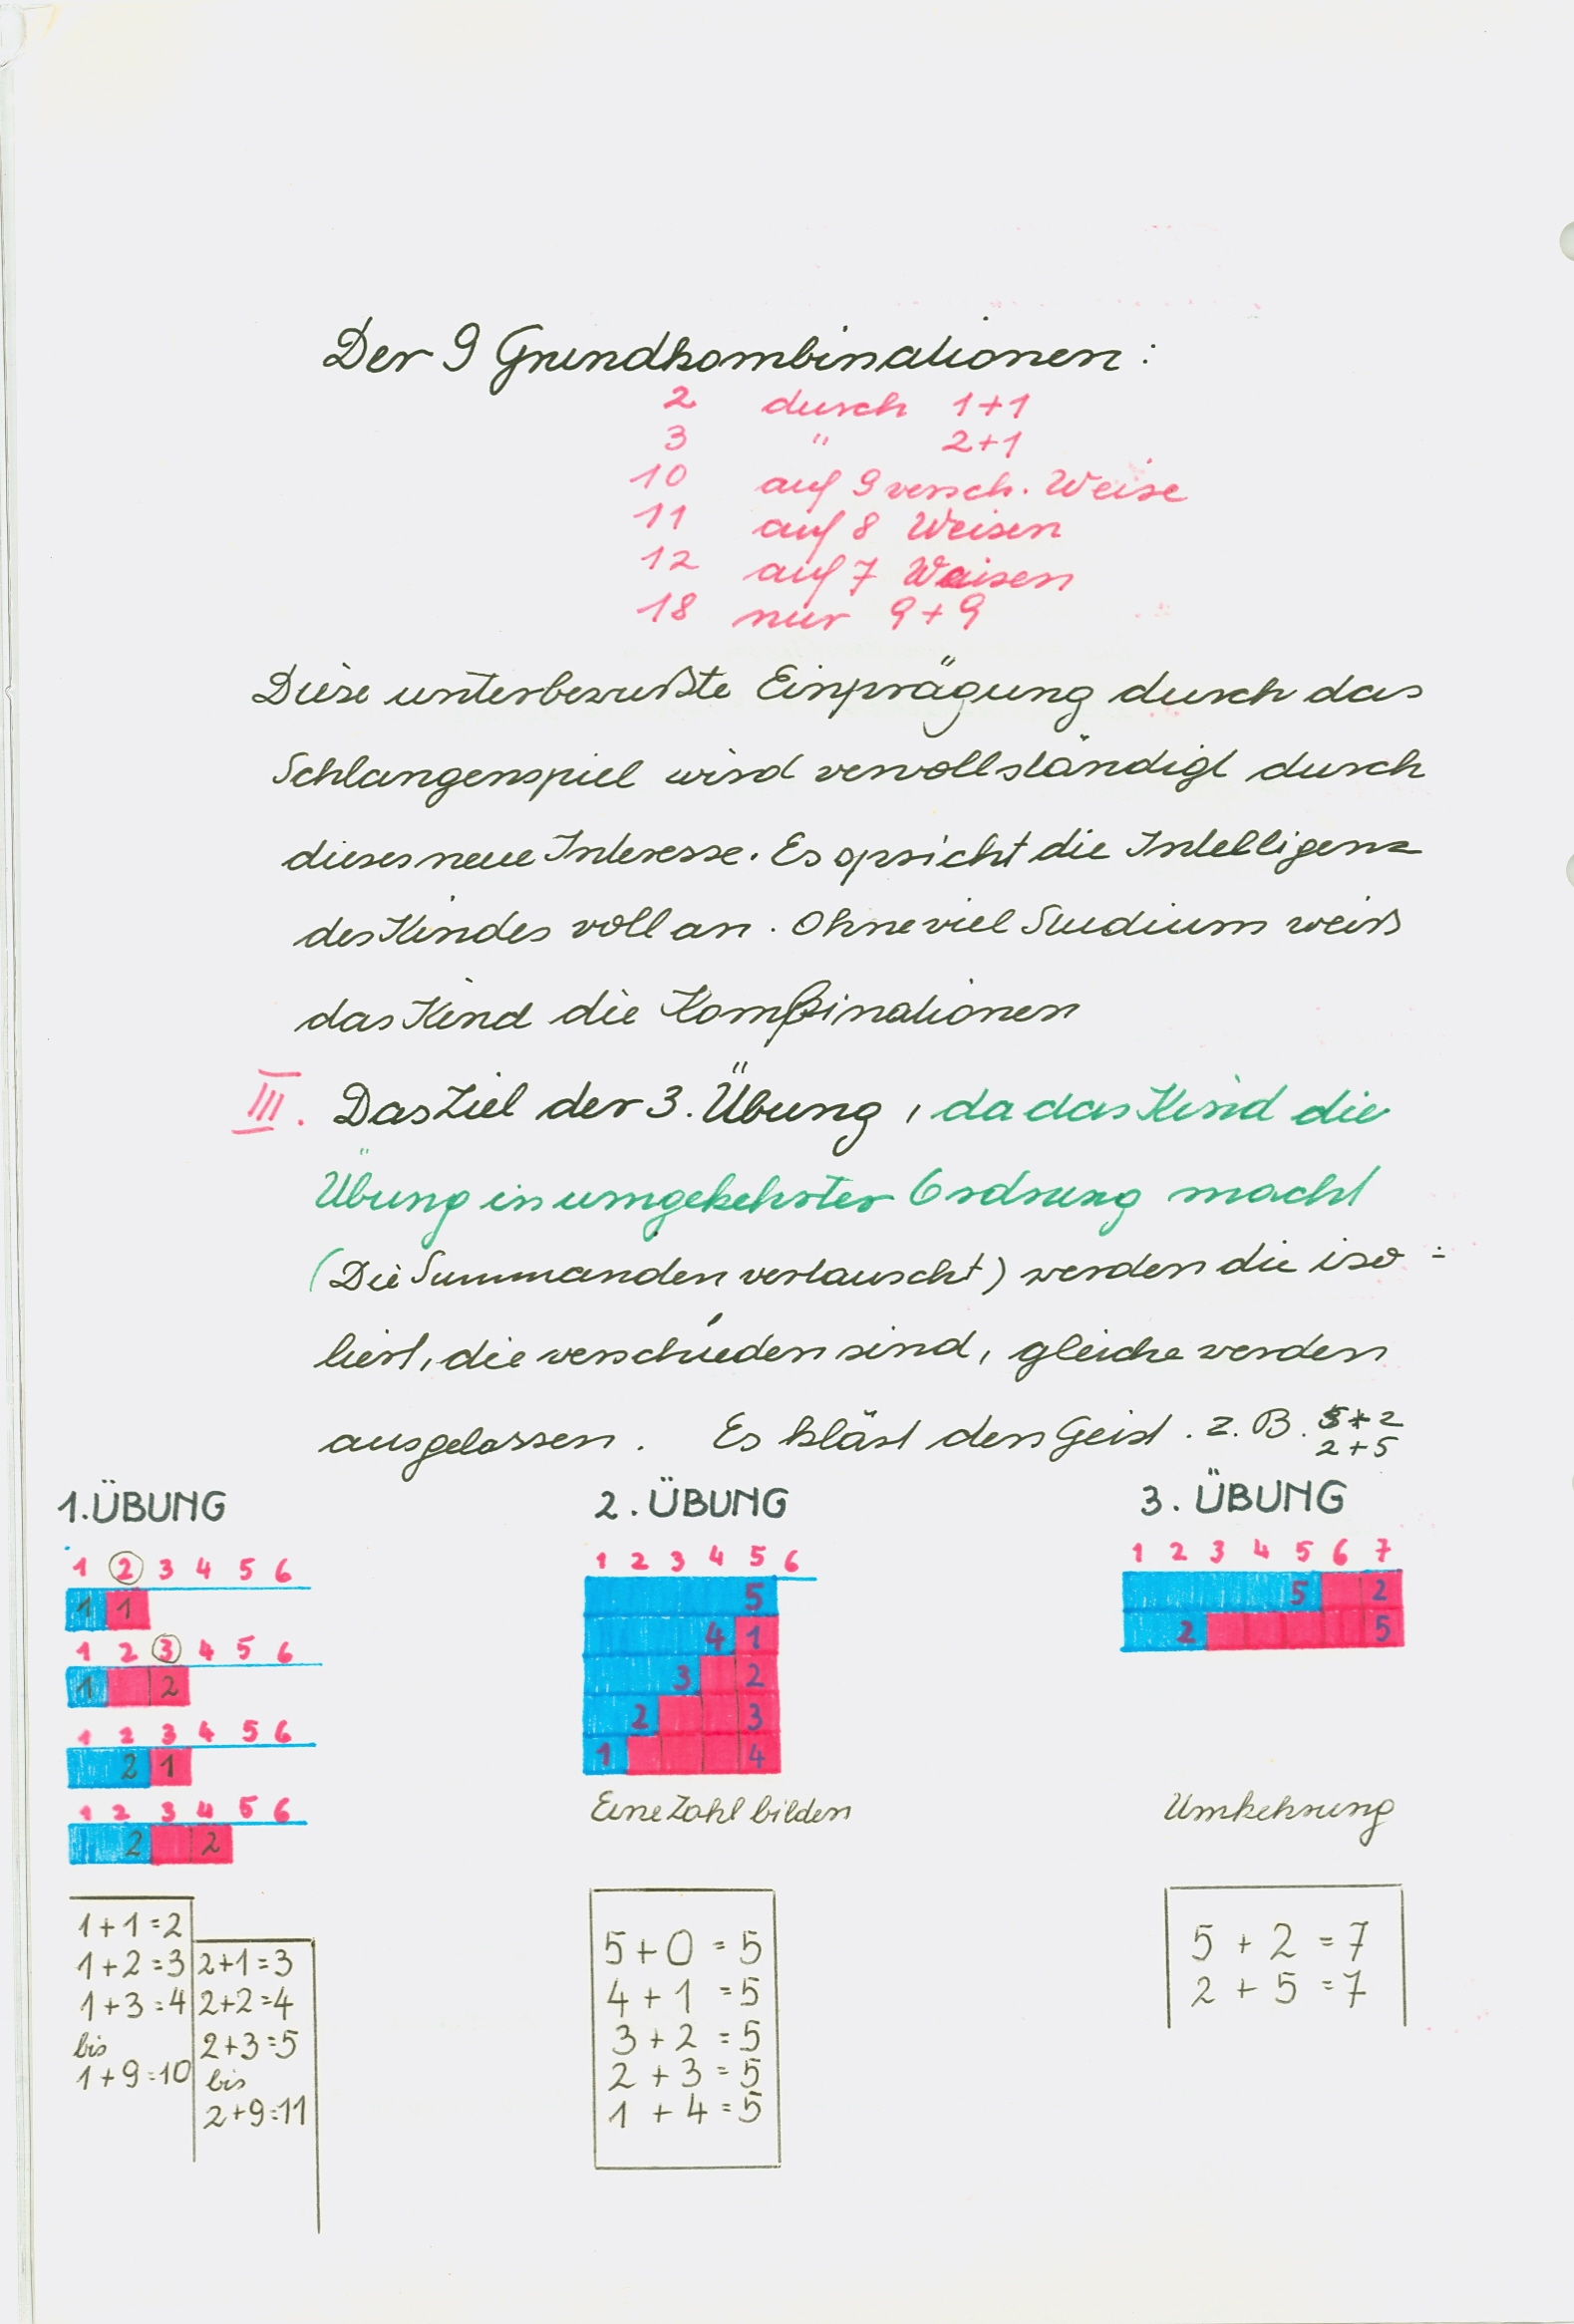 Der 9 Grundkombinationen:
2 durch 1+1
3 " 2+1
10 auf 9 versch. Weise
11 auf 8 Weisen
12 auf 7 Weisen
18 nur 9+9
Diese unterbewußte Einprägung durch das
Schlangenspiel wird vervollständigt durch
dieses neue Interesse. Es spricht die Intelligenz
des Kindes voll an. Ohne viel Studium weiß
das Kind die Kombinationen
III. Das Ziel der 3. Übung, da das Kind die
Übung in umgekehrter Ordnung macht
(Die Summanden vertauscht) werden die iso=
liert, die verschieden sind, gleiche werden
ausgelassen. Es klärt den Geist. z. B. 5+2
2+5
1. ÜBUNG
1 2 3 4 5 6
1 1
1 2 3 4 5 6
1 2
1 2 3 4 5 6
2 1
1 2 3 4 5 6
2 2
1+1=2
1+2=3
1+3=4
bis
1+9=10
2+1=3
2+2=4
2+3=5
bis
2+9=11
2. ÜBUNG
1 2 3 4 5 6
5
4 1
3 2
2 3
1 4
Eine Zahl bilden
5+0=5
4+1=5
3+2=5
2+3=5
1+4=5
3. ÜBUNG
1 2 3 4 5 6 7
5 2
2 5
Umkehrung
5+2=7
2+5=7